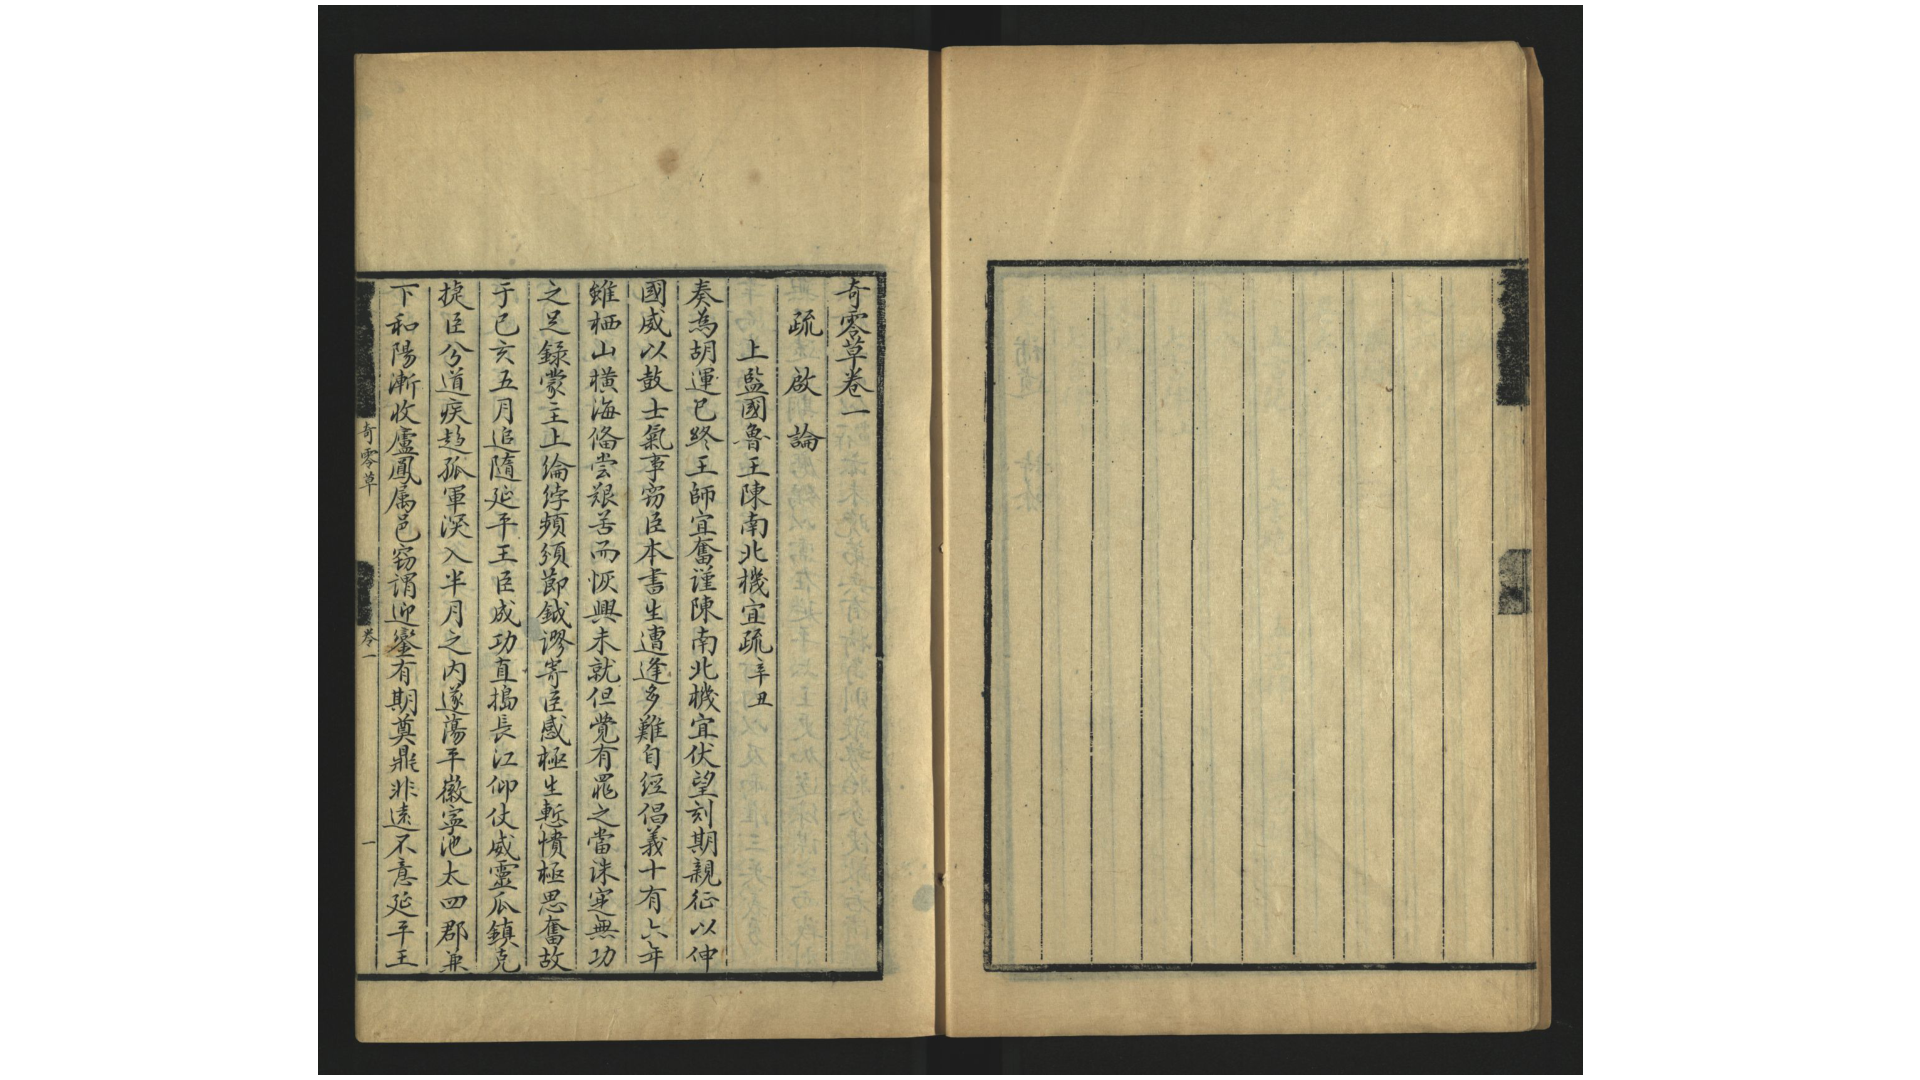 奇零草卷一
疏 啟 論
上監國魯王陳南北機宜疏 辛丑
奏為胡運已終王師宜奮謹陳南北機宜伏望刻期親征以伸
國威以鼓士氣事窃臣本書生遭逢多難自經倡義十有六年
雖栖山橫海俻嘗艱苦而恢興未就但覺有罪之當誅寔無功
之足録蒙主上綸綍頻頒節鉞謬寄臣感極生慙憤極思奮故
于己亥五月追隨延平王臣成功直搗長江仰仗威靈瓜鎮克
捷臣兮道疾趋孤軍深入半月之内遂蕩平徽寧池太四郡兼
下和陽漸收廬鳳属邑窃謂迎鑾有期奠鼎非遠不意延平王
奇零草
卷一
一